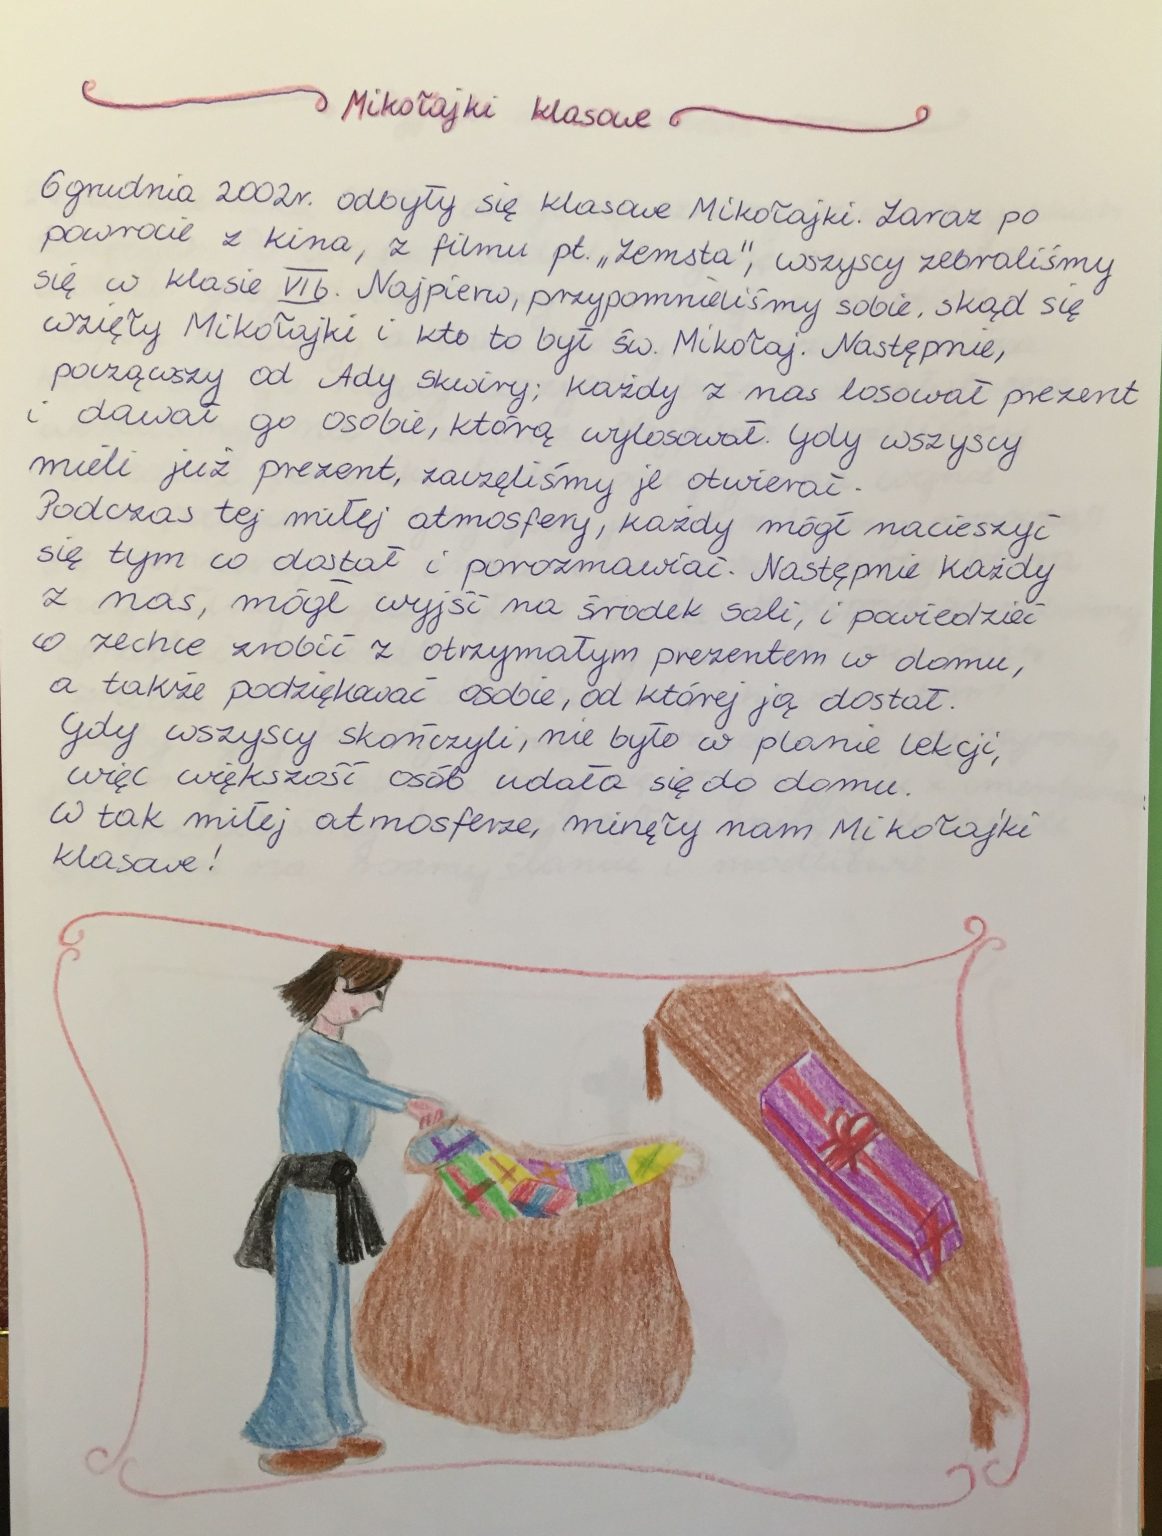 Mikołajki klasowe
6 grudnia 2002r. odbyły się klasowe Mikołajki. Zaraz po
powrocie z kina, z filmu pt. „Zemsta", wszyscy zebraliśmy
się w klasie VIb. Najpierw, przypomnieliśmy sobie, skąd się
wzięły Mikołajki i kto to był św. Mikołaj. Następnie,
począwszy od Ady Skwiry; każdy z nas losował prezent
i dawał go osobie, którą wylosował. Gdy wszyscy
mieli już prezent, zaczęliśmy je otwierać.
Podczas tej miłej atmosfery, każdy mógł nacieszyć
się tym co dostał i porozmawiać. Następnie każdy
z nas, mógł wyjść na środek sali, i powiedzieć
co zechce zrobić z otrzymałym prezentem w domu,
a także podziękować osobie, od której ją dostał.
Gdy wszyscy skończyli, nie było w planie lekcji,
więc większość osób udała się do domu.
W tak miłej atmosferze, minęły nam Mikołajki
klasowe!